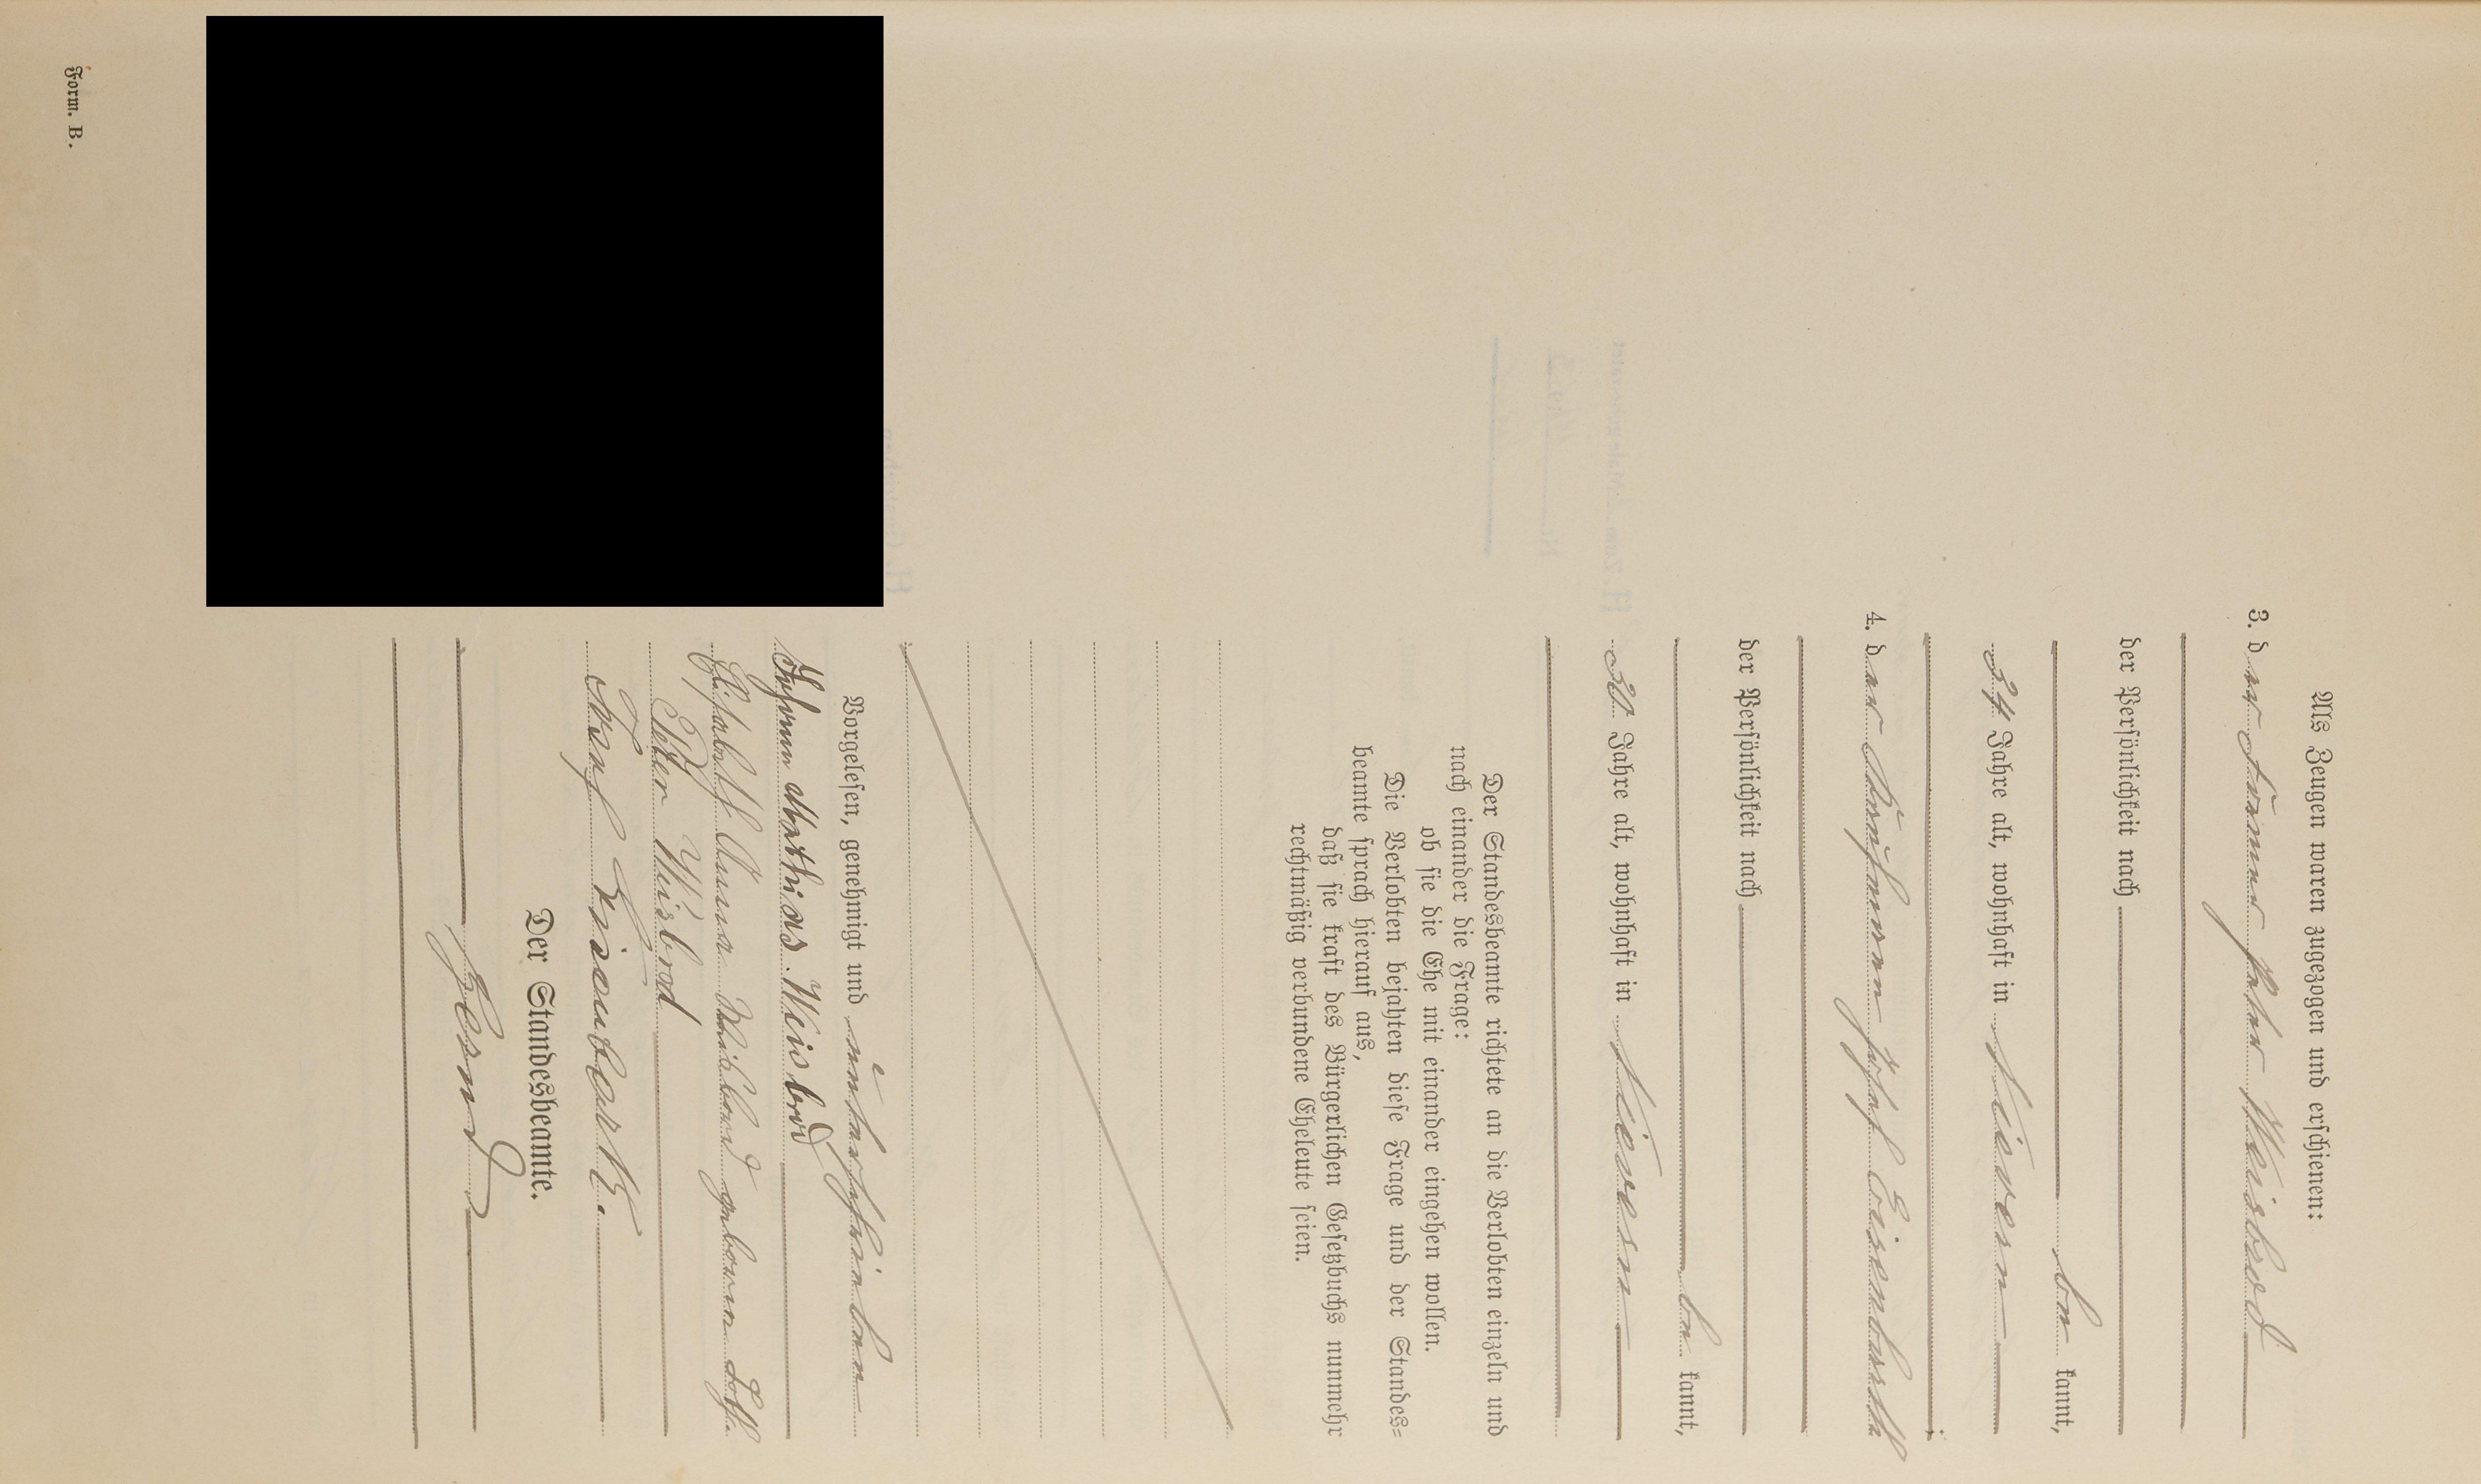 Als Zeugen waren zugezogen und erschienen:
3. der Former Peter Weisbrod
der Persönlichkeit nach
be kannt,
34 Jahre alt, wohnhaft in Nievern
4. der Peter Eisenbarth
der Persönlichkeit nach
be kannt,
30 Jahre alt, wohnhaft in Nievern
Der Standesbeamte richtete an die Verlobten einzeln und
nach einander die Frage:
ob sie die Ehe mit einander eingehen wollen.
Die Verlobten bejahten diese Frage und der Standes-
beamte sprach hierauf aus,
daß sie kraft des Bürgerlichen Gesetzbuchs nunmehr
rechtmäßig verbundene Eheleute seien.
Vorgelesen, genehmigt und unterschrieben
Johann Mathias Weisbrod
Elisabeth Anna Weisbrod geborene
Peter Weisbrod
Josef Eisenbarth.
Der Standesbeamte.
Form. B.